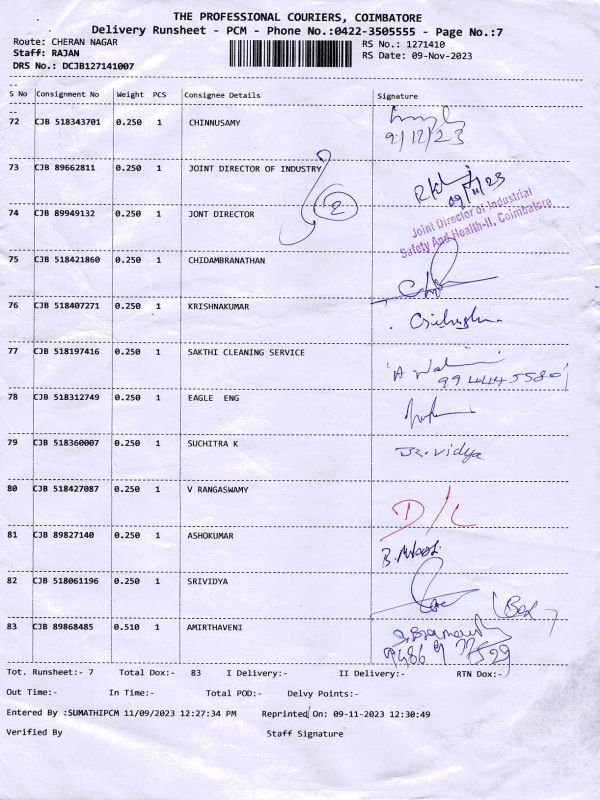 THE PROFESSIONAL COURIERS, COIMBATORE
Delivery Runsheet - PCM - Phone No.:0422-3505555 - Page No.:7
Route: CHERAN NAGAR RS No.: 1271410
Staff: RAJAN RS Date: 09-Nov-2023
DRS No.: DCJB127141007
S No Consignment No Weight PCS Consignee Details Signature
72 CJB 518343701 0.250 1 CHINNUSAMY
9/12/23
73 CJB 89662811 0.250 1 JOINT DIRECTOR OF INDUSTRY
09/11/23
2
74 CJB 89949132 0.250 1 JONT DIRECTOR
Joint Director of Industrial
Safety And Health-II, Coimbatore
75 CJB 518421860 0.250 1 CHIDAMBRANATHAN
76 CJB 518407271 0.250 1 KRISHNAKUMAR
77 CJB 518197416 0.250 1 SAKTHI CLEANING SERVICE
9944455801
78 CJB 518312749 0.250 1 EAGLE ENG
79 CJB 518360007 0.250 1 SUCHITRA K
vidya
80 CJB 518427087 0.250 1 V RANGASWAMY
D/L
81 CJB 89827140 0.250 1 ASHOKUMAR
82 CJB 518061196 0.250 1 SRIVIDYA
Box
83 CJB 89868485 0.510 1 AMIRTHAVENI
Tot. Runsheet:- 7 Total Dox:- 83 I Delivery:- II Delivery:- RTN Dox:-
Out Time:- In Time:- Total POD:- Delvy Points:-
Entered By :SUMATHIPCM 11/09/2023 12:27:34 PM Reprinted On: 09-11-2023 12:30:49
Verified By Staff Signature